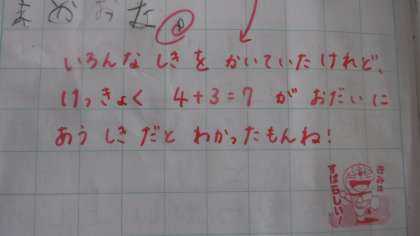 いろんな しきを かいていたけれど、
けっきょく 4+3=7 が おだいに
あう しきだと わかったもんね!
きみは
すばらしい!